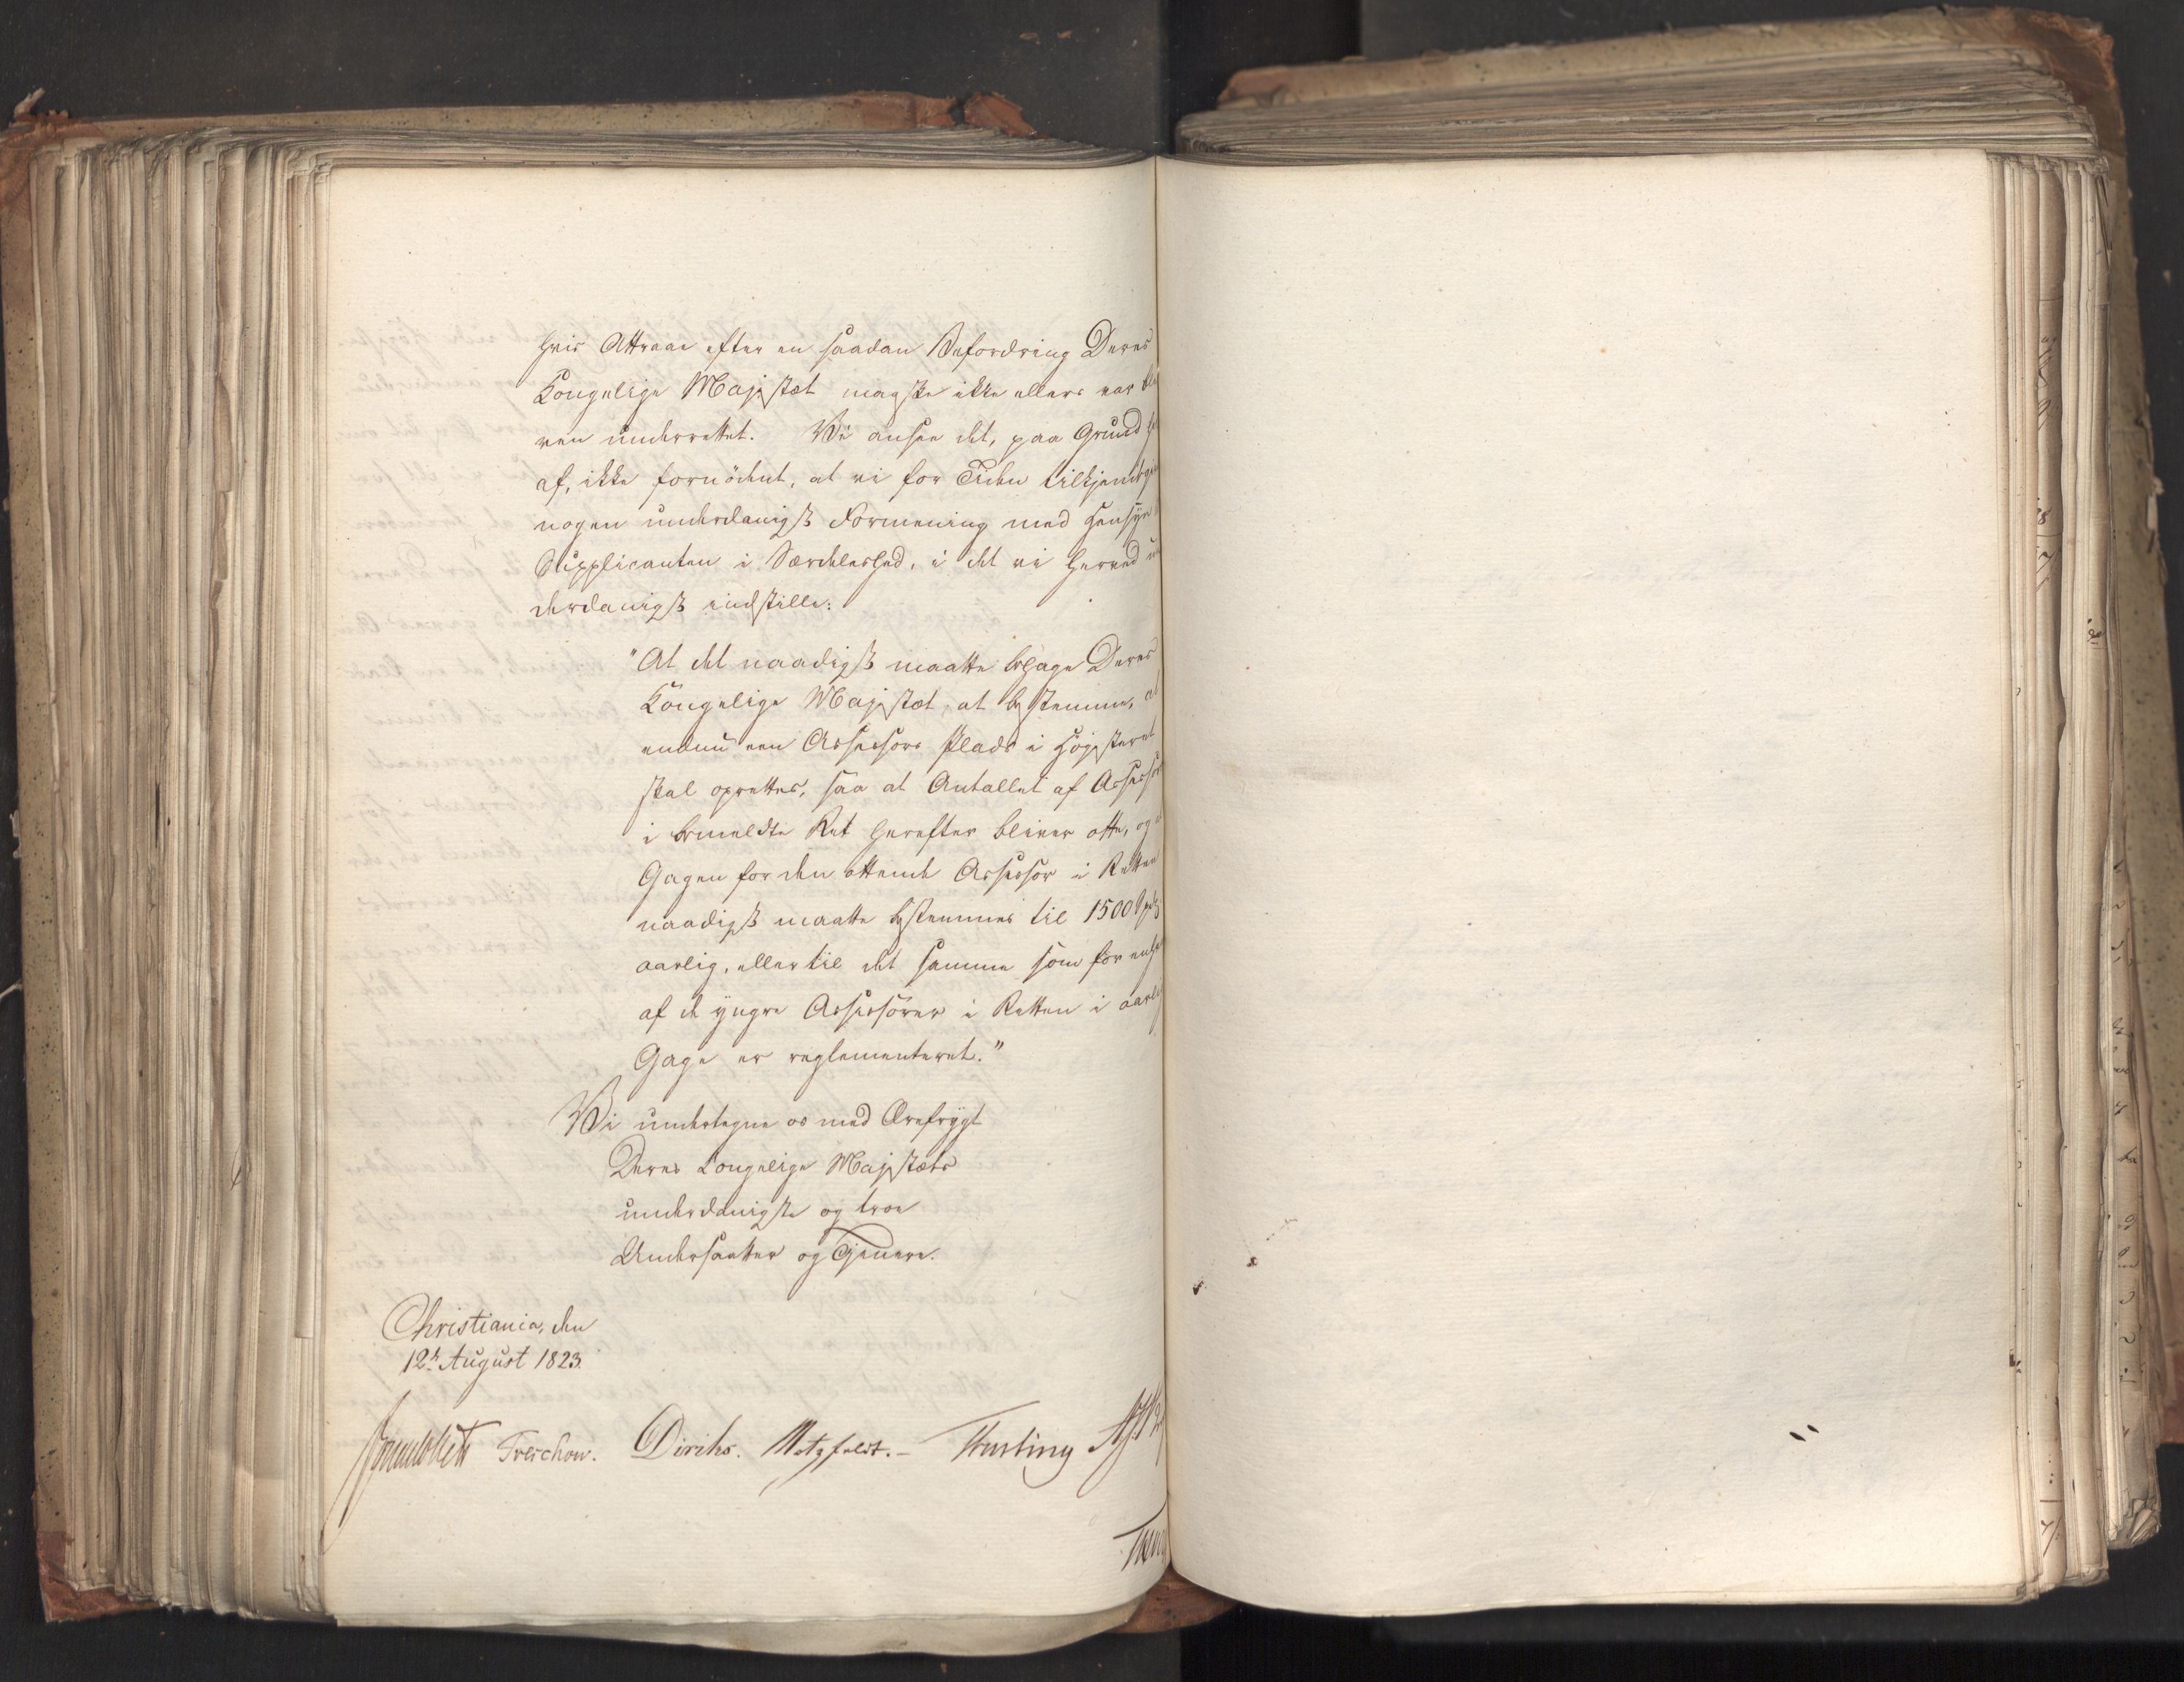 hvis Attraae efter en saadan Befordring Deres
Kongelige Majestæt maaske ikke ellers var ble
ven underrettet. Vi ansee det, paa Grund her
af, ikke fornödent, at vi for Tiden tilkjendegive
nogen underdanigst Formening med Hensyn
Supplicanten i Særdeleshed, i det vi herved un
derdanigst indstille:
"At det naadigst maatte behage Deres
Kongelige Majestæt, at bestemme, at
endnu een Assessors Plads i Høiesteret
skal oprettes, saa at Antallet af Assessorer
i bemeldte Ret herefter bliver otte, og at
Gagen for den ottende Assessor i Retten
naadigst maatte bestemmes til 1500 Spd
aarlig, eller til det samme som for enhver
af de yngre Assessorer i Retten i aarlig
Gage er reglementeret."
Vi undertegne os med Ærefrygt
Deres Kongelige Majestæts
underdanigste og troe
Undersaatter og Tjenere.
Christiania, den
12te August 1823.
Sommerhielm Treschow. Diriks. Motzfeldt.- Fasting